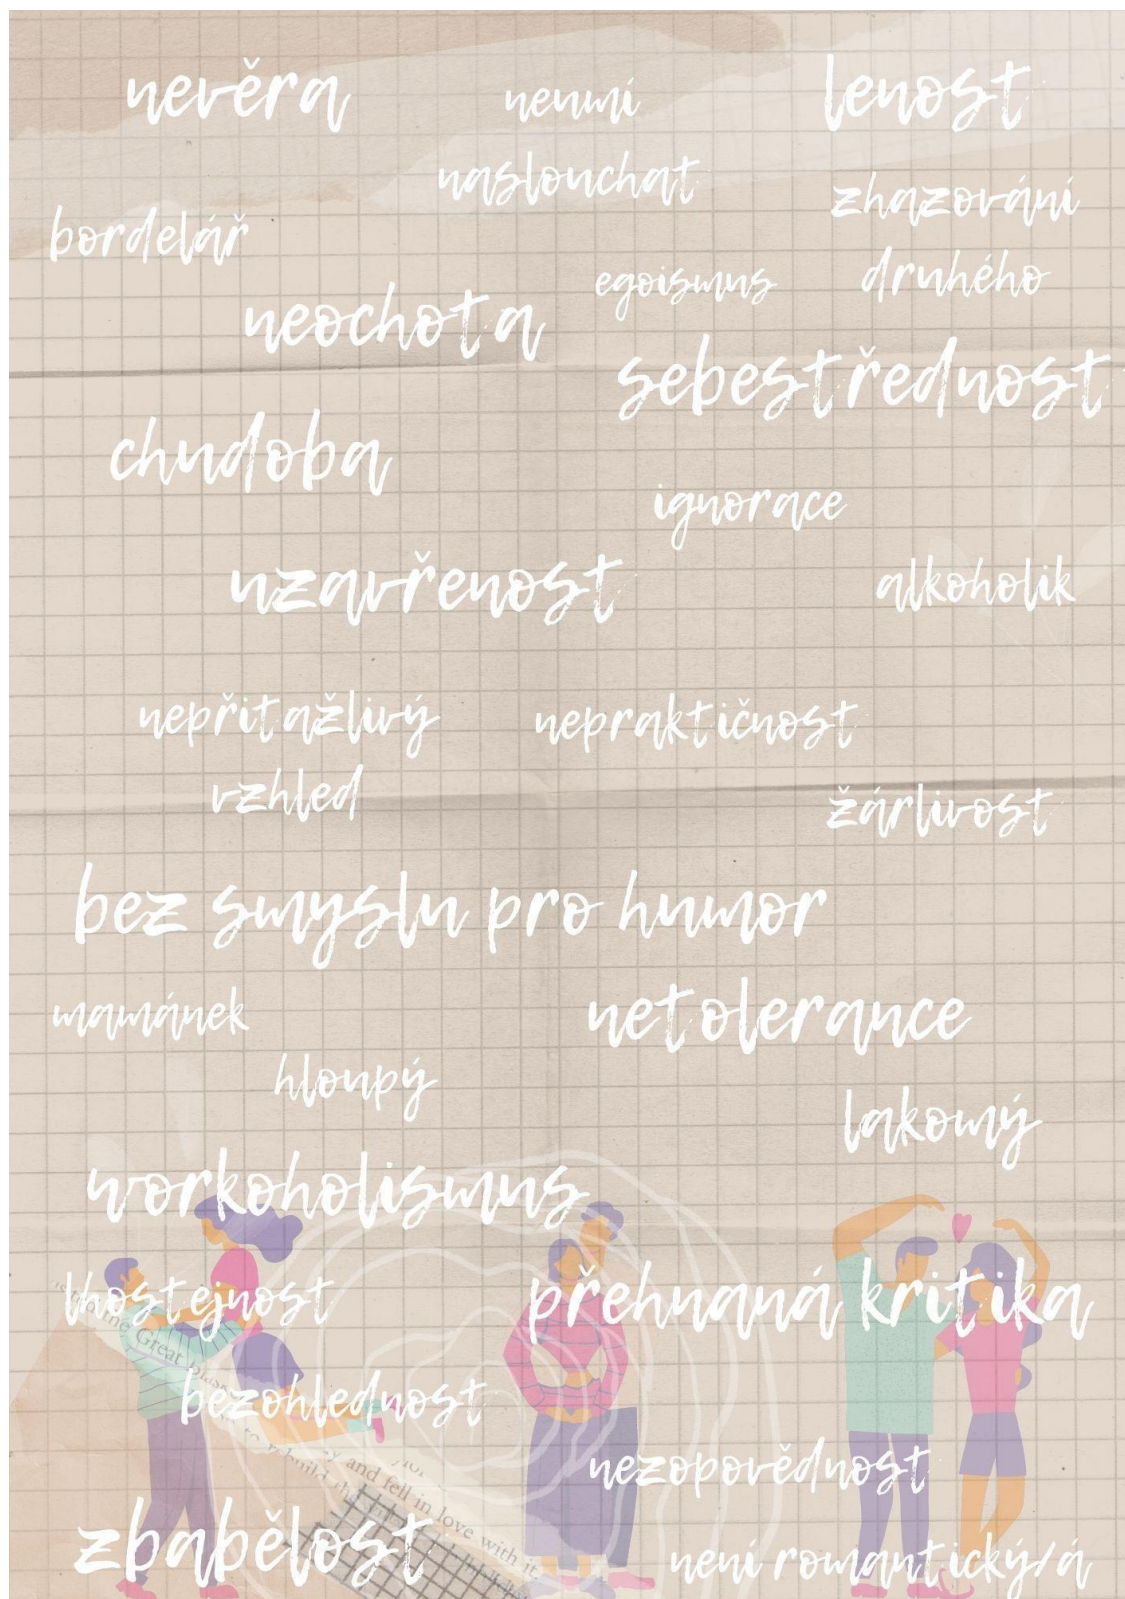 nevěra
neumí
naslouchat
lenost
zhazování
druhého
bordelář
egoismus
neochota
sebestřednost
chudoba
ignorace
uzavřenost
alkoholik
nepřitažlivý
vzhled
nepraktičnost
žárlivost
bez smyslu pro humor
mamánek
netolerance
hloupý
lakomý
workoholismus
lhostejnost
přehnaná kritika
bezohlednost
nezopovědnost
zbabělost
není romantický/á
Great
and fell in love with it